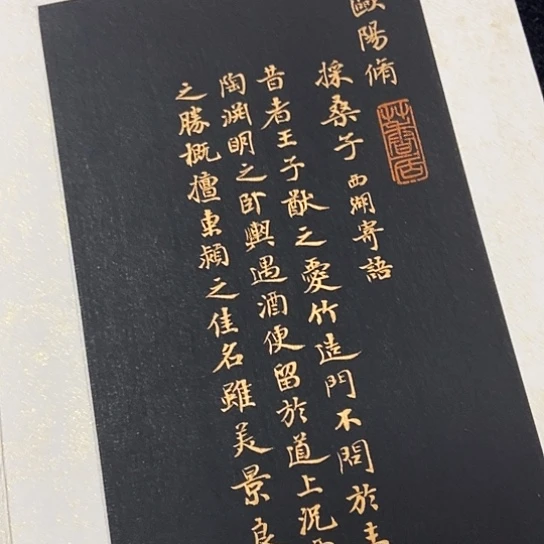 歐陽脩
採桑子 西湖寄語
昔者王子猷之愛竹造門不問於主
陶淵明之卧輿遇酒便留於道上況
之勝概擅東潁之佳名雖美景良